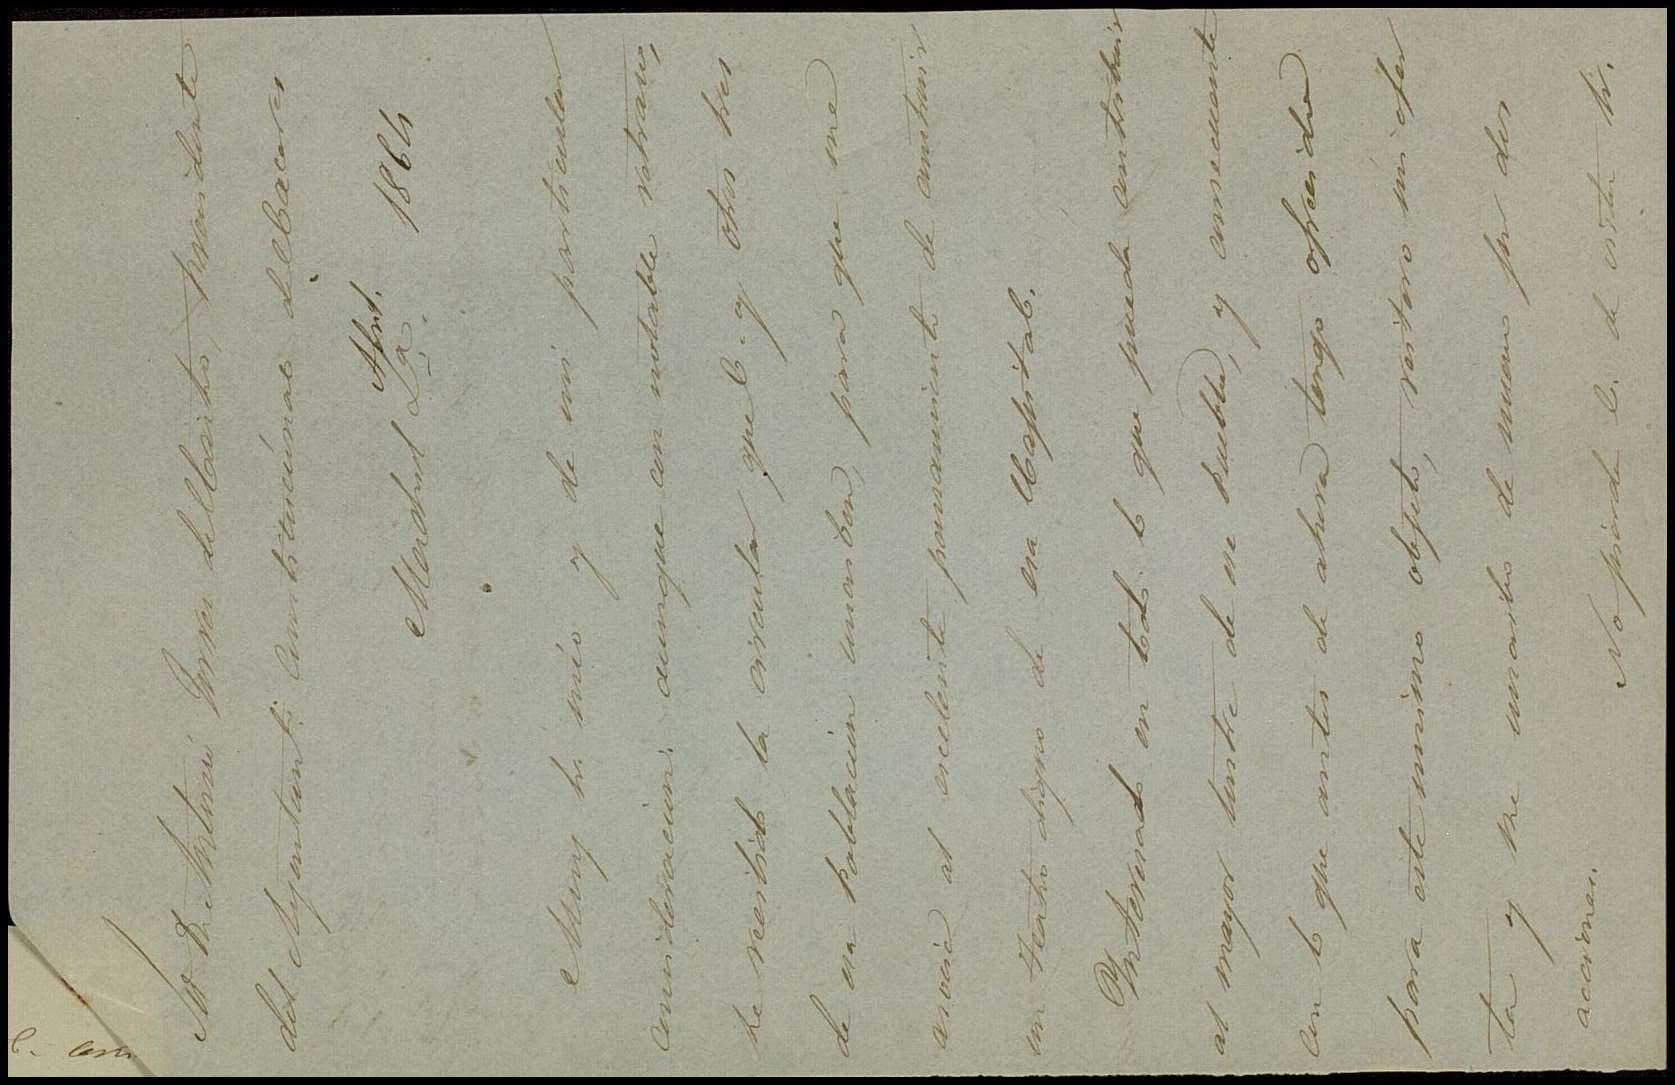 Sr. D. Antonio Jover del Castro, presidente
del Ayuntamto. Constitucional de Caceres
Madrid Abril 1864
Muy Sr. mio y de mi particular
consideracion: aunque con notable retraso,
he recibido la circular que V. y otros tres
de esa poblacion suscriben, para que me
asocie al excelente pensamiento de construir
un teatro digno de esa Capital.
Interesado en todo lo que pueda contribuir
al mayor lustre de ese pueblo, y consecuente
con lo que antes de ahora tengo ofrecido
para este mismo objeto, reitero mi ofer
ta y me suscribo de nuevo por dos
acciones.
No pierda V. de vista Sr.